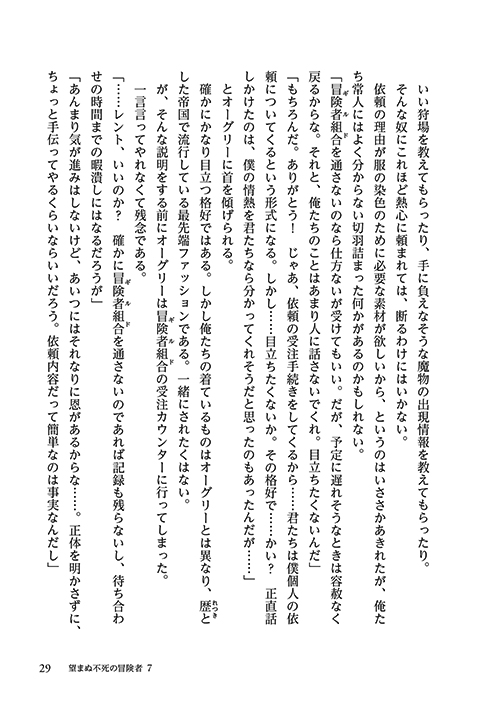 いい狩場を教えてもらったり、手に負えなそうな魔物の出現情報を教えてもらったり。
そんな奴にこれほど熱心に頼まれては、断るわけにはいかない。
依頼の理由が服の染色のために必要な素材が欲しいから、というのはいささかあきれたが、俺た
ち常人にはよく分からない切羽詰まった何かがあるのかもしれない。
「冒険者組合を通さないのなら仕方ないが受けてもいい。だが、予定に遅れそうなときは容赦なく
戻るからな。それと、俺たちのことはあまり人に話さないでくれ。目立ちたくないんだ」
「もちろんだ。ありがとう！　じゃあ、依頼の受注手続きをしてくるから……君たちは僕個人の依
頼についてくるという形式になる。しかし……目立ちたくないか。その格好で……かい？　正直話
しかけたのは、僕の情熱を君たちなら分かってくれそうだと思ったのもあったんだが……」
とオーグリーに首を傾げられる。
確かにかなり目立つ格好ではある。しかし俺たちの着ているものはオーグリーとは異なり、歴と
した帝国で流行している最先端ファッションである。一緒にされたくはない。
が、そんな説明をする前にオーグリーは冒険者組合の受注カウンターに行ってしまった。
一言言ってやれなくて残念である。
「……レント、いいのか？　確かに冒険者組合を通さないのであれば記録も残らないし、待ち合わ
せの時間までの暇潰しにはなるだろうが」
「あんまり気が進みはしないけど、あいつにはそれなりに恩があるからな……。正体を明かさずに、
ちょっと手伝ってやるくらいならいいだろう。依頼内容だって簡単なのは事実なんだし」
29　望まぬ不死の冒険者 7